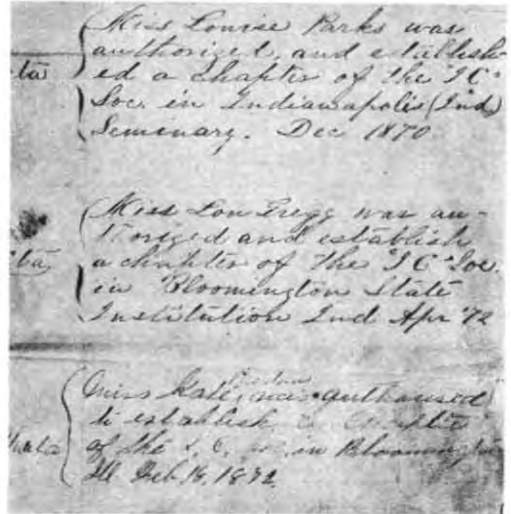 Miss Louise Parks was
authorized and establish
ta ed a chapter of the I C
Soc. in Indianapolis (Ind)
Seminary. Dec 1870
Miss Lou Gregg was au-
thorized and establish
ta a chapter of the I C Soc.
in Bloomington State
Institution Ind Apr '72
Miss Kate was authorized
to establish a chapter
of the I. C. in Bloomington
Ill Feb. 18, 1872